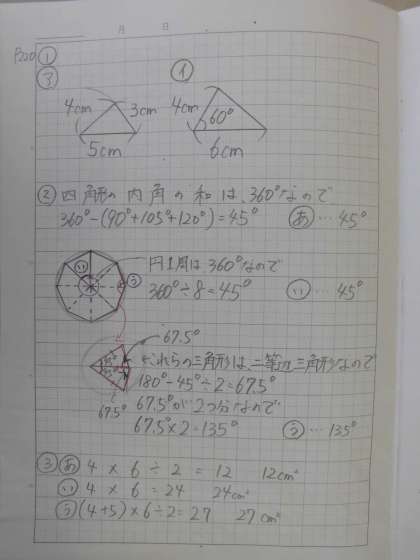 月 日
P200 ①
③ ④
4cm 3cm 4cm 60°
5cm 6cm
② 四角形の内角の和は、360°なので
360°-(90°+105°+120°)=45° あ…45°
い
う
円1周は、360°なので
360°÷8=45° い…45°
67.5°
45°
これらの三角形は、二等辺三角形なので
180°-45°÷2=67.5°
67.5°
67.5°が2つ分なので
67.5×2=135° う…135°
③ あ 4×6÷2=12 12cm²
い 4×6=24 24cm²
う (4+5)×6÷2=27 27cm²